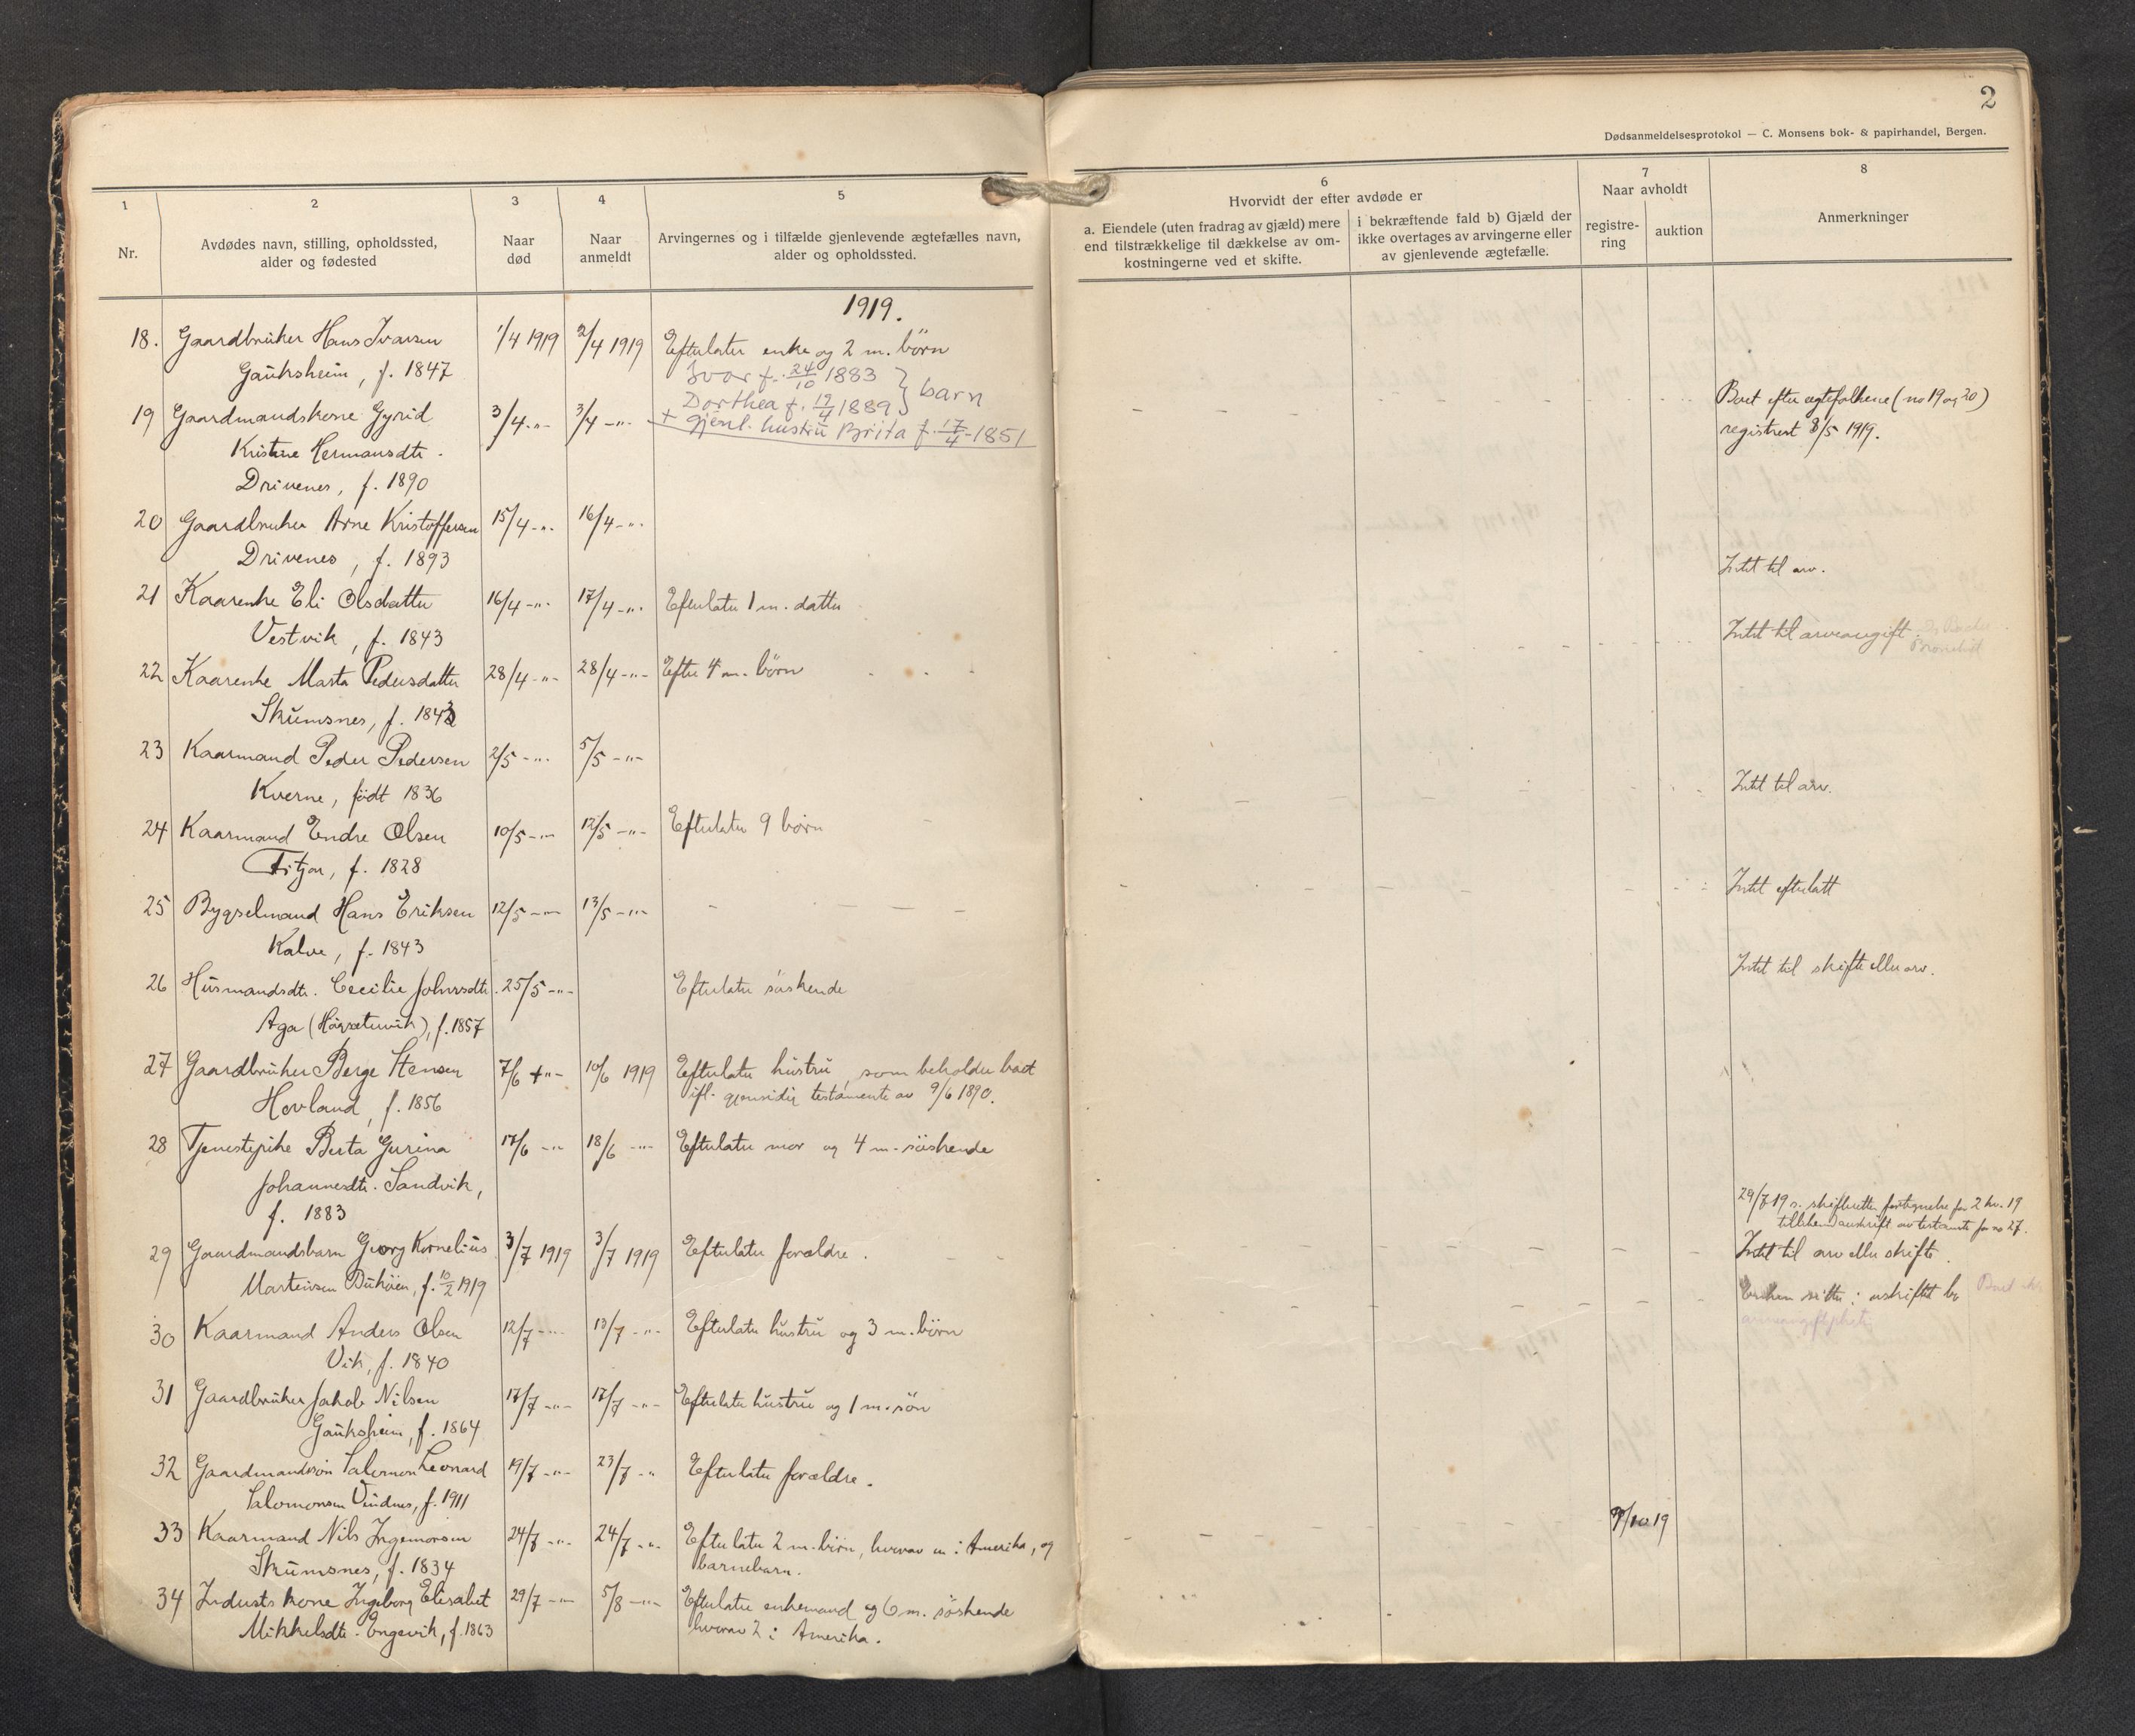 2
Dødsanmeldelsesprotokol — C. Monsens bok- & papirhandel, Bergen.
1
2
3
4
5
6
7
8
Nr.
Avdødes navn, stilling, opholdssted,
alder og fødested
Naar
død
Naar
anmeldt
Arvingernes og i tilfælde gjenlevende ægtefælles navn,
alder og opholdssted.
Hvorvidt der efter avdøde er
a. Eiendele (uten fradrag av gjæld) mere
end tilstrækkelige til dækkelse av om-
kostningerne ved et skifte.
i bekræftende fald b) Gjæld der
ikke overtages av arvingerne eller
av gjenlevende ægtefælle.
Naar avholdt
registre-
ring
auktion
Anmerkninger
1919.
18. Gaardbruker Hans Ivarsen 1/4 1919 2/4 1919 Efterlater enke og 2 m. börn
Gauksheim, f. 1847
Ivar f. 24/10 1883 } barn
Dorthea f. 19/4 1889
+ gjenl. hustru Brita f. 17/4 1851
19 Gaardmandskone Gyrid 3/4 -"- 3/4 -"-
Kristine Hermansdtr.
Drivenes, f. 1890
Boet efter egtefolkene (no 19 og 20)
registrert 8/5 1919.
20 Gaardbruker Arne Kristoffersen 15/4 -"- 16/4 -"-
Drivenes, f. 1893
Intet til arv.
21 Kaarenke Eli Olsdatter 16/4 -"- 17/4 -"- Efterlater 1 m. datter
Vestvik, f. 1843
Intet til arveavgift.
22 Kaarenke Marta Pedersdatter 28/4 -"- 28/4 -"- Efter 4 m. börn
Skumsnes, f. 1843
23 Kaarmand Peder Pedersen 2/5 -"- 5/5 -"-
Kverne, födt 1836
Intet til arv.
24 Kaarmand Endre Olsen 10/5 -"- 12/5 -"- Efterlater 9 börn
Fitjar, f. 1828
Intet efterlatt
25 Bygselmand Hans Eriksen 12/5 -"- 13/5 -"-
Kalve, f. 1843
Intet til skifte eller arv.
26 Husmandsdtr. Cecilie Johnsdtr. 25/5 -"- Efterlater söskende
Aga f. 1857
27 Gaardbruker Berge Stensen 7/6 -"- 10/6 1919 Efterlater hustru, som beholder boet
Hovland, f. 1856 ifl. gjensidig testamente av 9/6 1890.
28 Tjenestepike Berta Gurina 17/6 -"- 18/6 -"- Efterlater mor og 4 m. söskende
Johannesdtr. Sandvik,
f. 1883
29/7 19 s. skifteretten fortegnelse for 2 kv. 19
tillikemed avskrift av testamte for no 27.
29 Gaardmandsbarn Georg Kornelius 3/7 1919 3/7 1919 Efterlater forældre.
Martinsen f. 10/2 1919
Intet til arv eller skifte.
Enken sitter i uskiftet bo
30 Kaarmand Anders Olsen 12/7 -"- 13/7 -"- Efterlater hustru og 3 m. börn
Vik, f. 1840
31 Gaardbruker Jakob Nilsen 17/7 -"- 17/7 -"- Efterlater hustru og 1 m. sön
Gauksheim, f. 1864
32 Gaardmandssön Salomon Leonard 19/7 -"- 23/7 -"- Efterlater forældre.
Salomonsen Vindnes, f. 1911
33 Kaarmand Nils Ingemorsen 24/7 -"- 24/7 -"- Efterlater 2 m. börn, hvorav en i Amerika, og
Skumsnes, f. 1834 barnebarn.
9/10 19
34 Industs kone Ingeborg Elisabet 29/7 -"- 5/8 -"- Efterlater enkemand og 6 m. söskende
Mikkelsdtr. Engevik, f. 1863 hvorav 2 i Amerika.